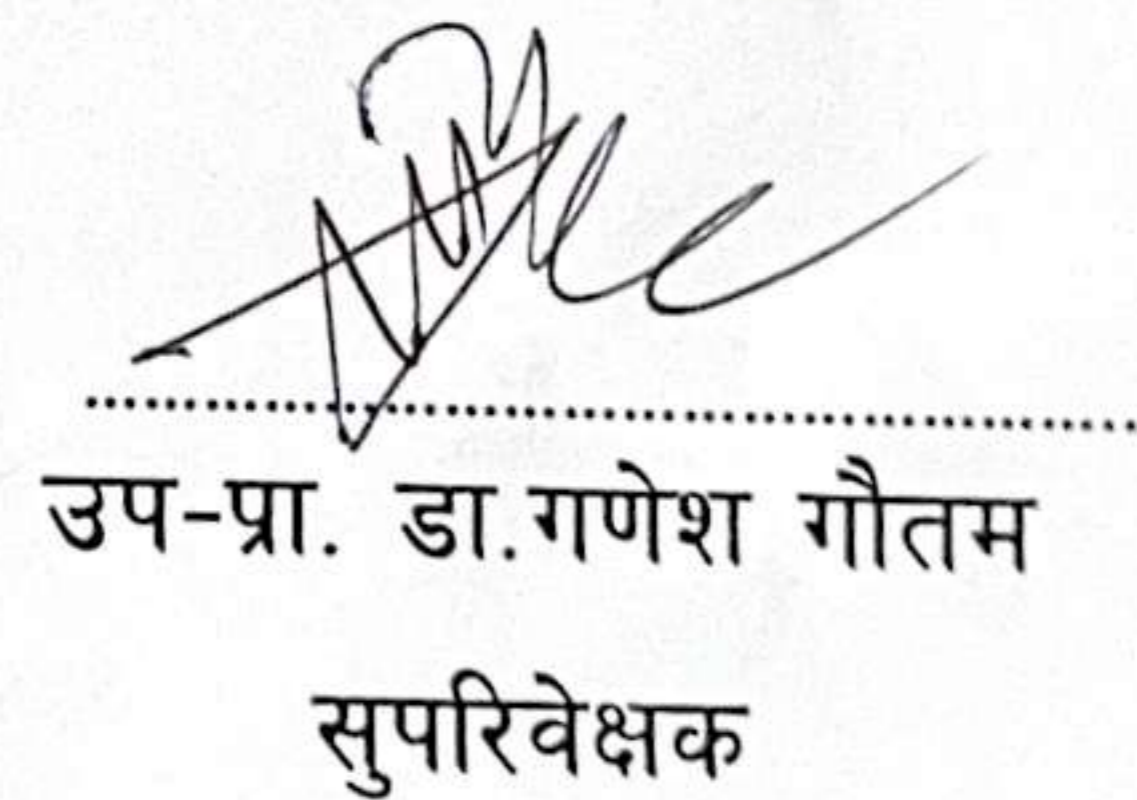 उप-प्रा. डा.गणेश गौतम
सुपरिवेक्षक